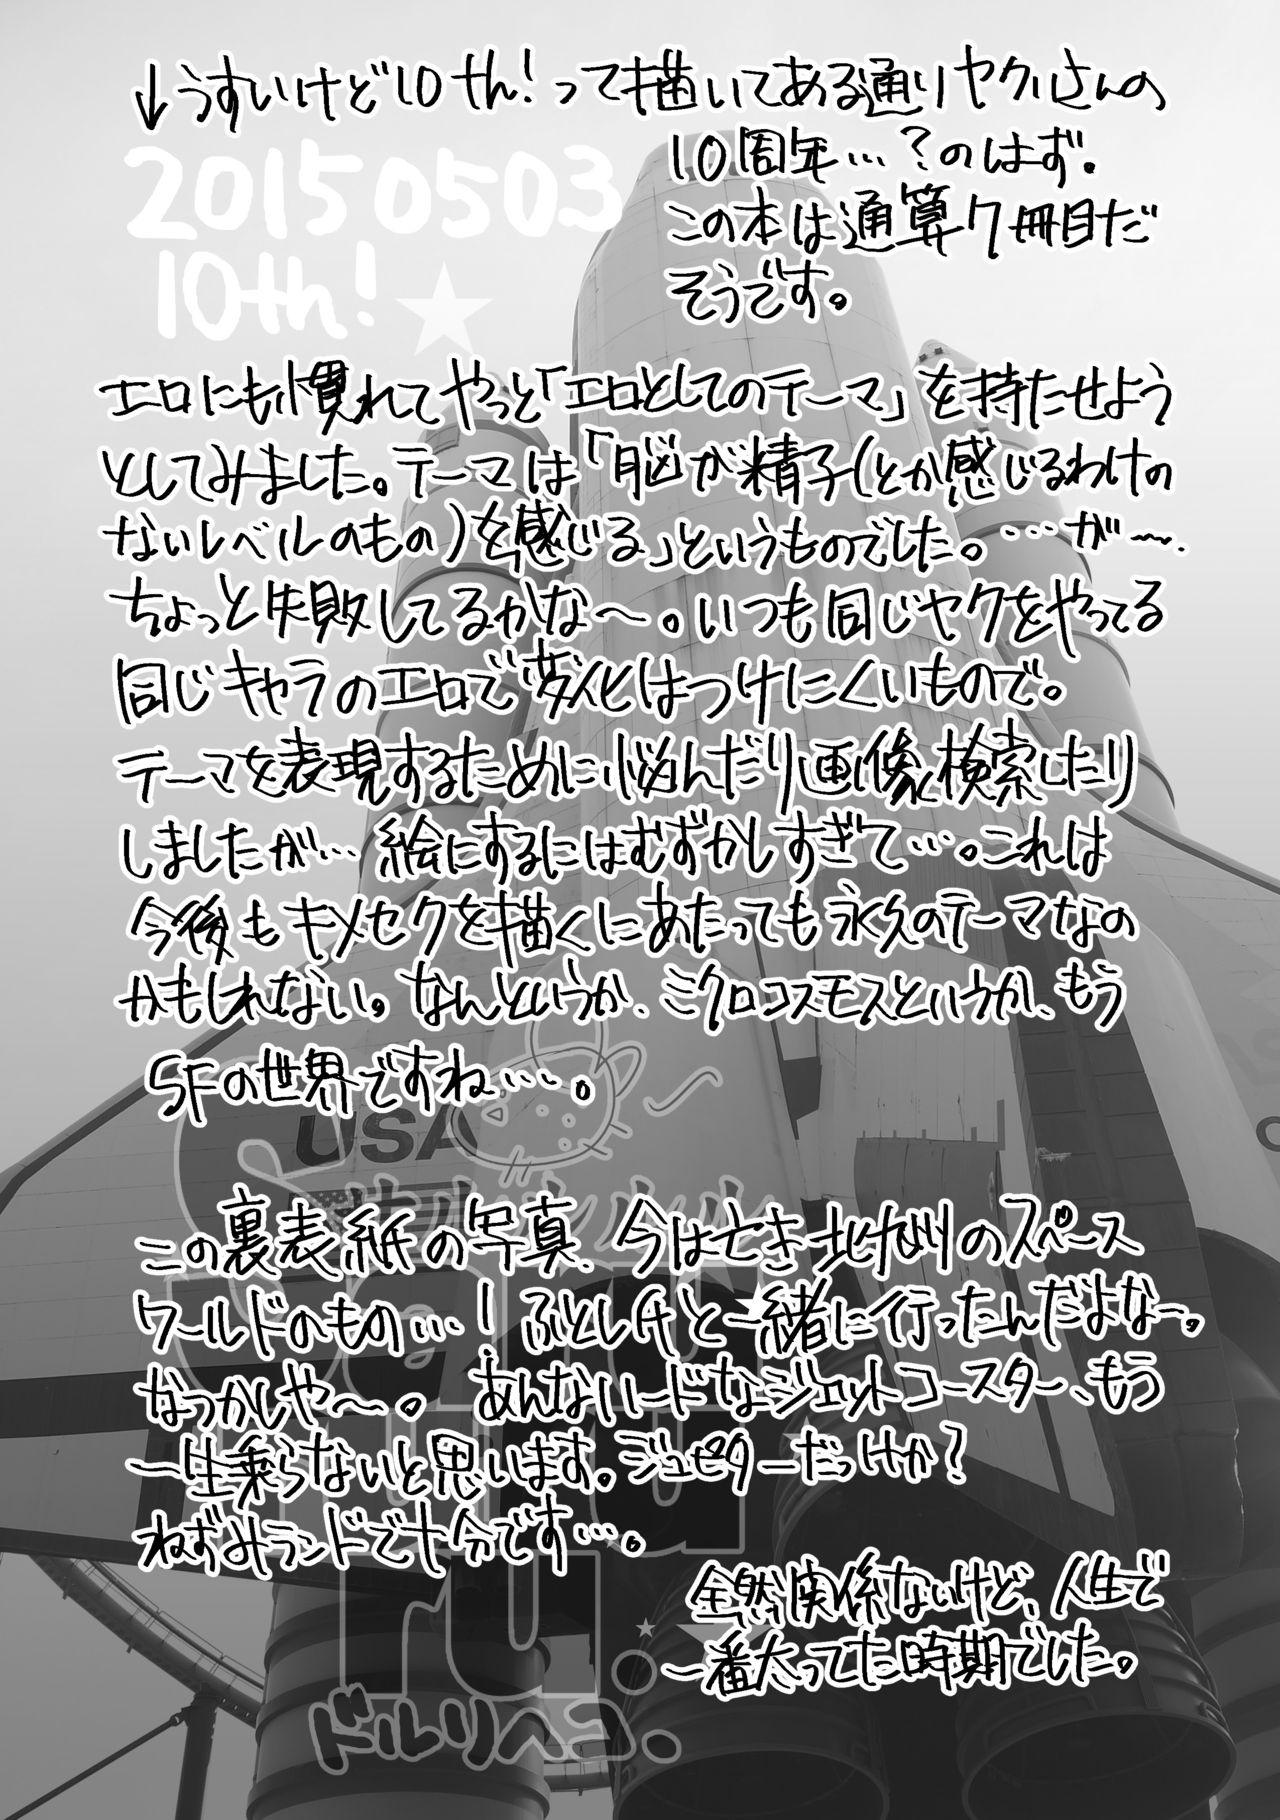 ↓うすいけど10th!って描いてある通りヤクルさんの
20150503
10th!
10周年…?のはず。
この本は通算7冊目だ
そうです。
エロにも慣れてやっと「エロとしてのテーマ」を持たせよう
としてみました。テーマは「脳が精子(とか感じるわけの
ないレベルのもの)を感じる」というものでした。…が〜、
ちょっと失敗してるかな〜。いつも同じヤクをやってる
同じキャラのエロで変化はつけにくいもので。
テーマを表現するために悩んだり画像検索したり
しましたが…絵にするにはむずかしすぎて…。これは
今後もキメセクを描くにあたっても永久のテーマなの
かもしれない。なんというか、ミクロコスモスというか、もう
SFの世界ですね…。
USA
この裏表紙の写真、今は亡き北九州のスペース
ワールドのもの…!ふとしAと一緒に行ったんだよな〜。
なつかしや〜。あんなハードなジェットコースター、もう
一生乗らないと思います。ジュピターだっけか?
ねずみランドで十分です…。
全然関係ないけど、人生で
一番太ってた時期でした。
ドルリヘコ.